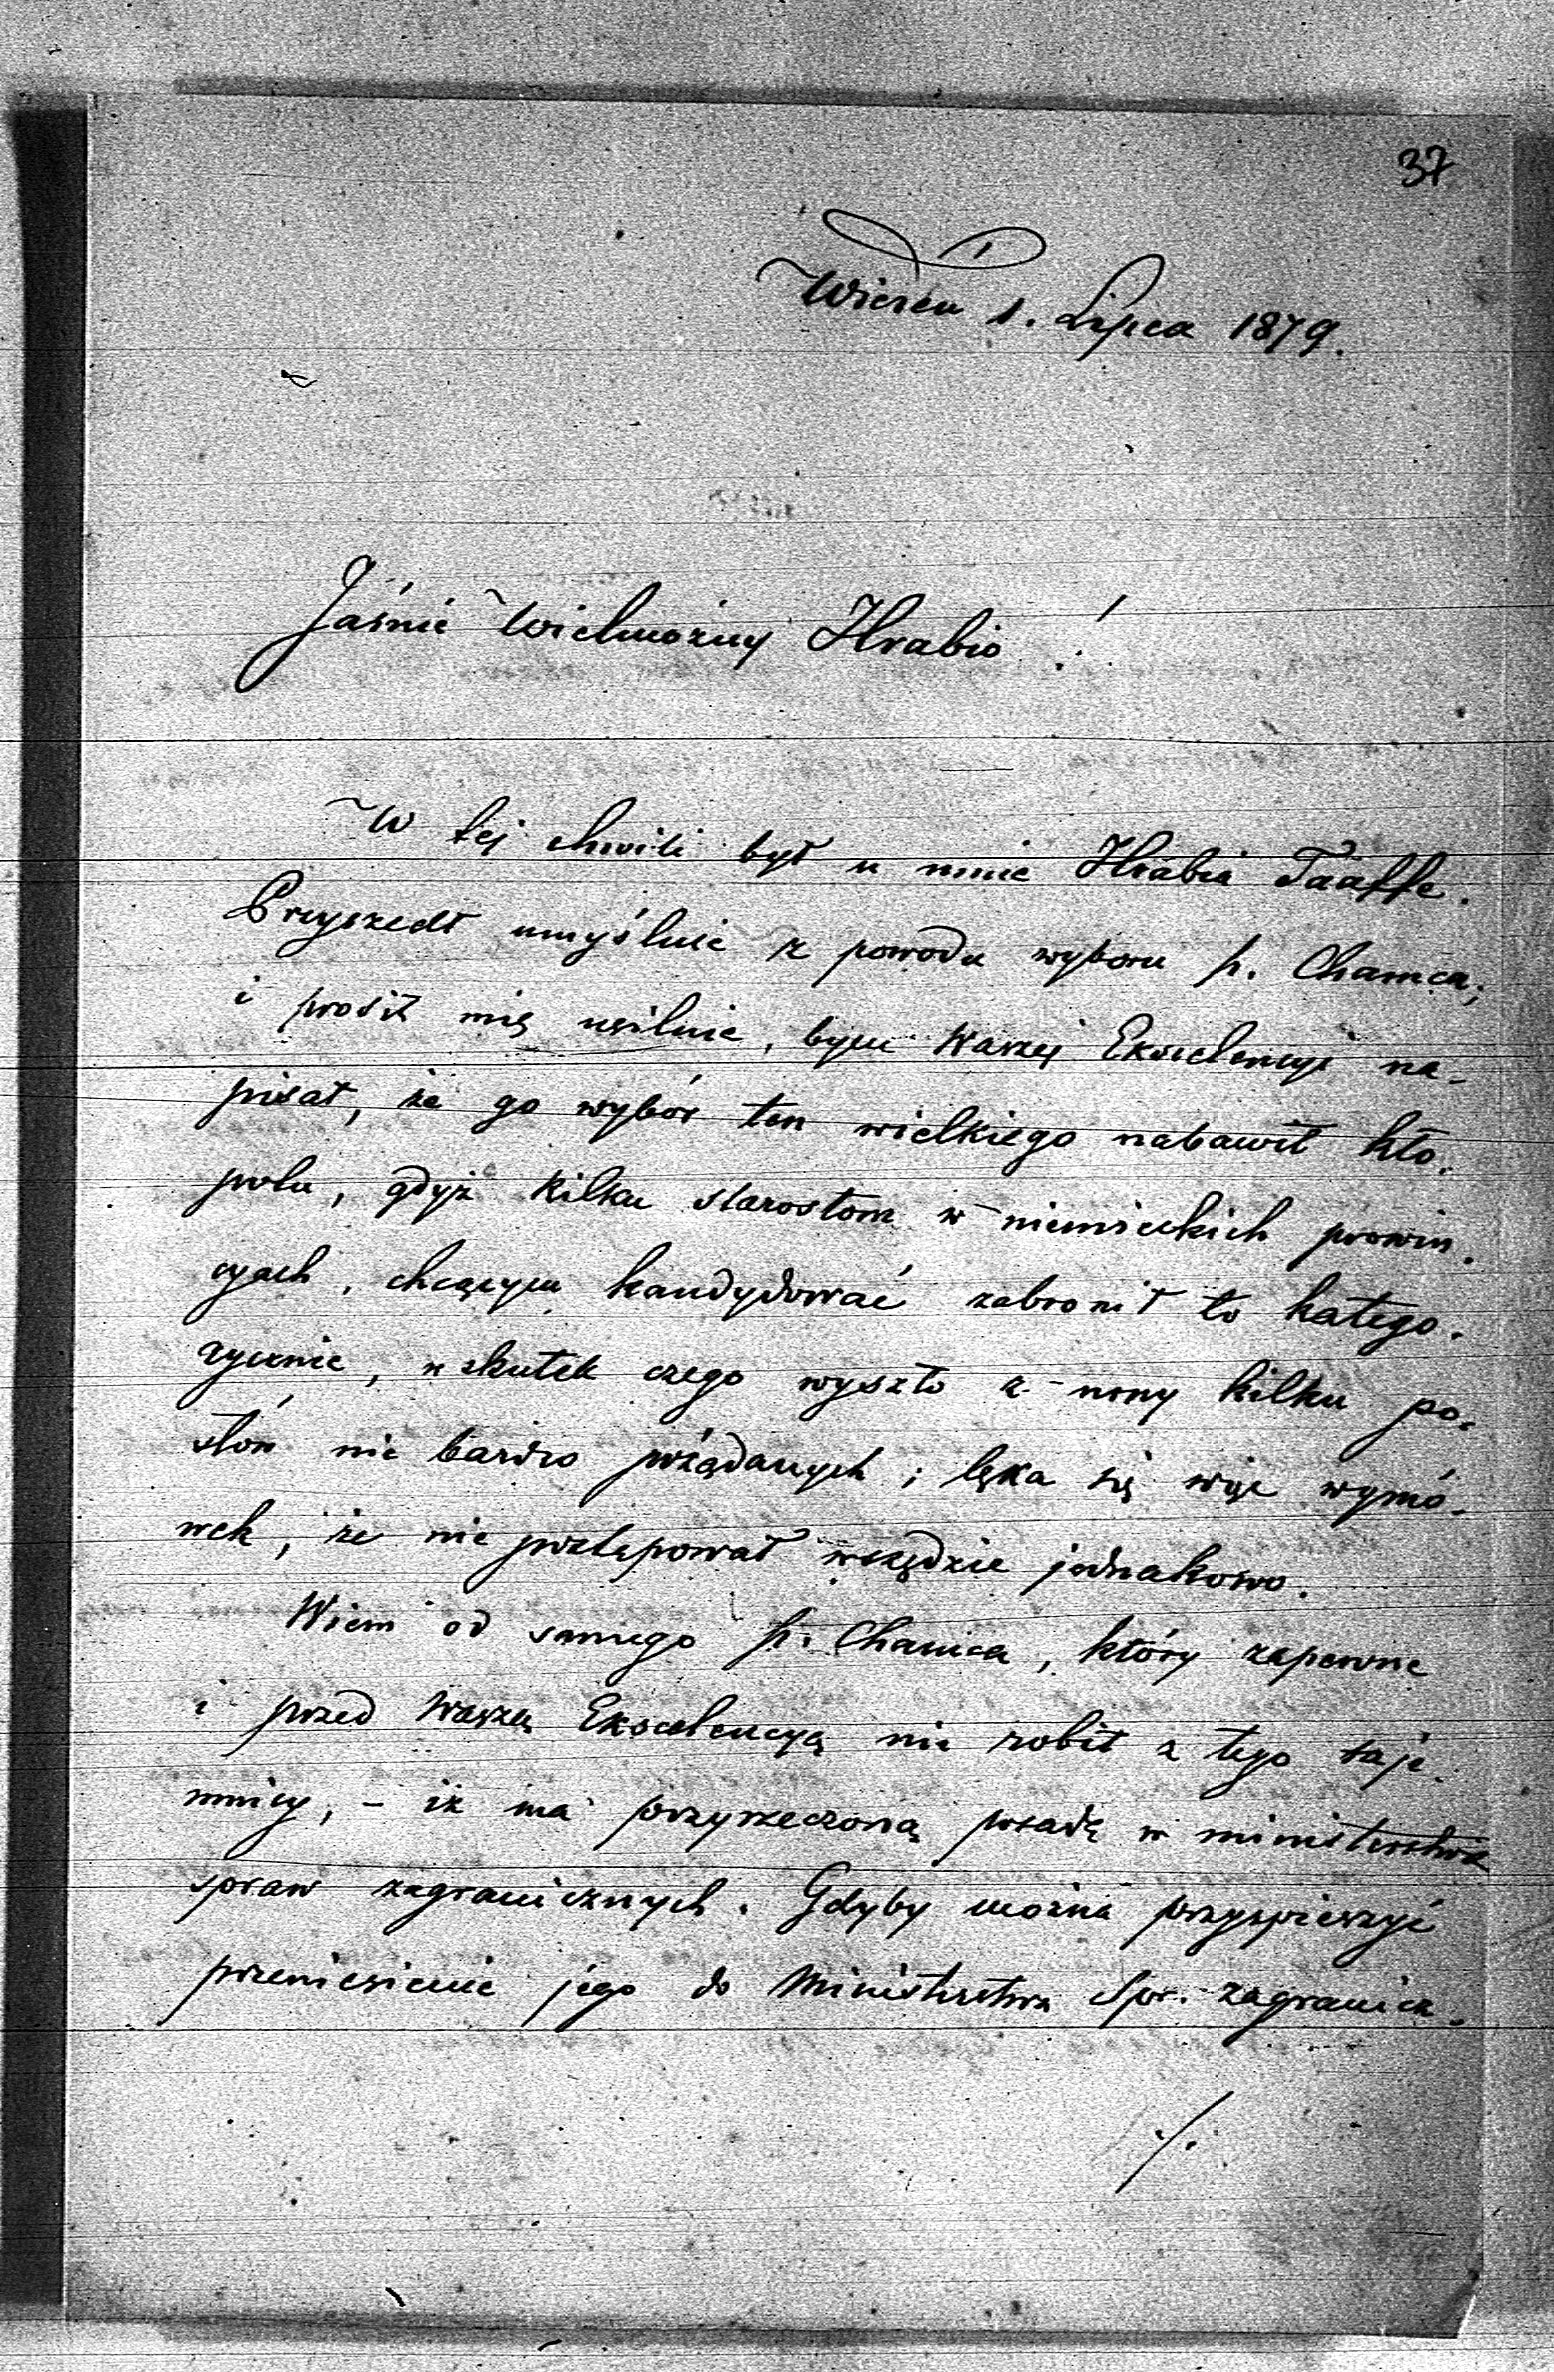 37
Wiedeń 1. Lipca 1879.
Jaśnie Wielmożny Hrabio!
W tej chwili był u mnie Hrabia Taaffe.
Przyszedł umyślnie z powodu wyboru p. Chamca;
i prosił mię usilnie, bym Waszej Ekscelencyi na-
pisał, że go wybór ten wielkiego nabawił kło-
potu, gdyż kilku starostom w niemieckich prowin-
cyach, chcącym kandydować zabronił to katego-
rycznie, wskutek czego wyszło z urny kilku po-
słów nie bardzo pożądanych; lęka się więc wymó-
wek, że nie postępował wszędzie jednakowo.
Wiem od samego p. Chamca, który zapewne
i przed Waszą Ekscelencyą nie robił z tego taje-
mnicy, – iż ma przyrzeczoną posadę w ministerstwie
spraw zagranicznych. Gdyby można przyspieszyć
przeniesienie jego do Ministerstwa Spr. zagranicz-
./.